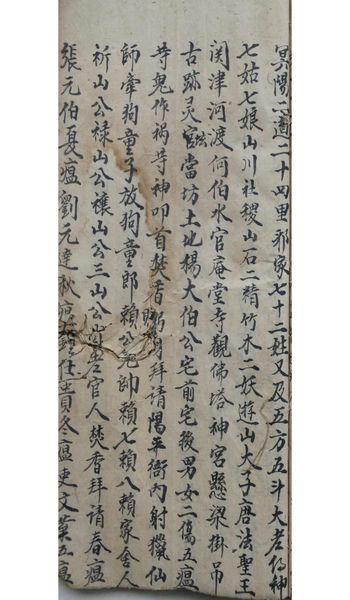 冥陽二道二十四里邪家七十二姓又及五方五斗大老傷神
七姑七娘山川社稷山石二精竹木二妖遊山大子唐法聖王
関津河渡何伯水官庵堂寺觀佛塔神宮懸梁掛吊
古跡灵宫壇當坊土地楊大伯公宅前宅後男女二傷五瘟
等鬼作禍等神叩首焚香躬身拜請陽平衙內射獵仙
師牽狗童子放狗童郎賴公元帅賴七賴八賴家舍人
祈山公祿山公禳山公三山公官人焚香拜請春瘟
張元伯夏瘟劉元達秋瘟仕貴冬瘟史文業五瘟